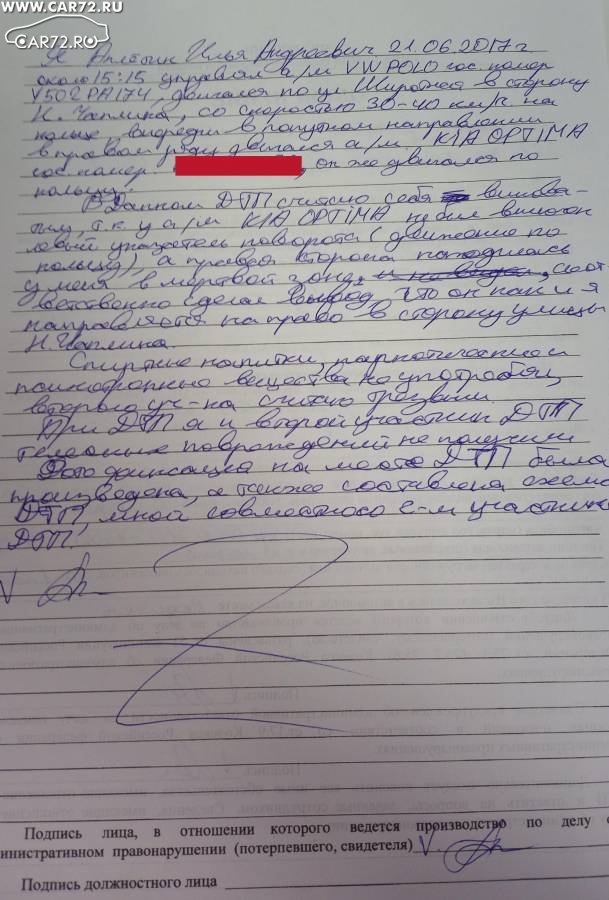 WWW.CAR72.RU
CAR72.RU
Я Илья Андреевич 21.06.2017 г
около 15:15 управлял а/м VW POLO гос. номер
У502РА174, двигался по ул Широтная в сторону
Н. Чаплина, со скоростью 30-40 км/ч на
кольце, впереди в попутном направлении
в правом ряду двигался а/м KIA OPTIMA
гос. номер. , он же двигался по
кольцу.
В Данном ДТП считаю себя винова-
тым, т.к у а/м KIA OPTIMA не был включон
левый указатель поворота (движение по
кольцу), а правая сторона находилась
у меня в мертвой зоне, соот
ветственно сделал вывод что он как и я
направляется направо в сторону улицы
Н. Чаплина.
Спиртные напитки, наркотические и
психотропные вещества не употреблял,
второго уч-ка считаю трезвым.
При ДТП я и второй участник ДТП
телесных повреждений не получили
Фото фиксация на месте ДТП была
произведена, а также составлена схема
ДТП, мной совместно с 2-м участнико
ДТП.
V
Подпись лица, в отношении которого ведется производство по делу о
министративном правонарушении (потерпевшего, свидетеля) V
Подпись должностного лица